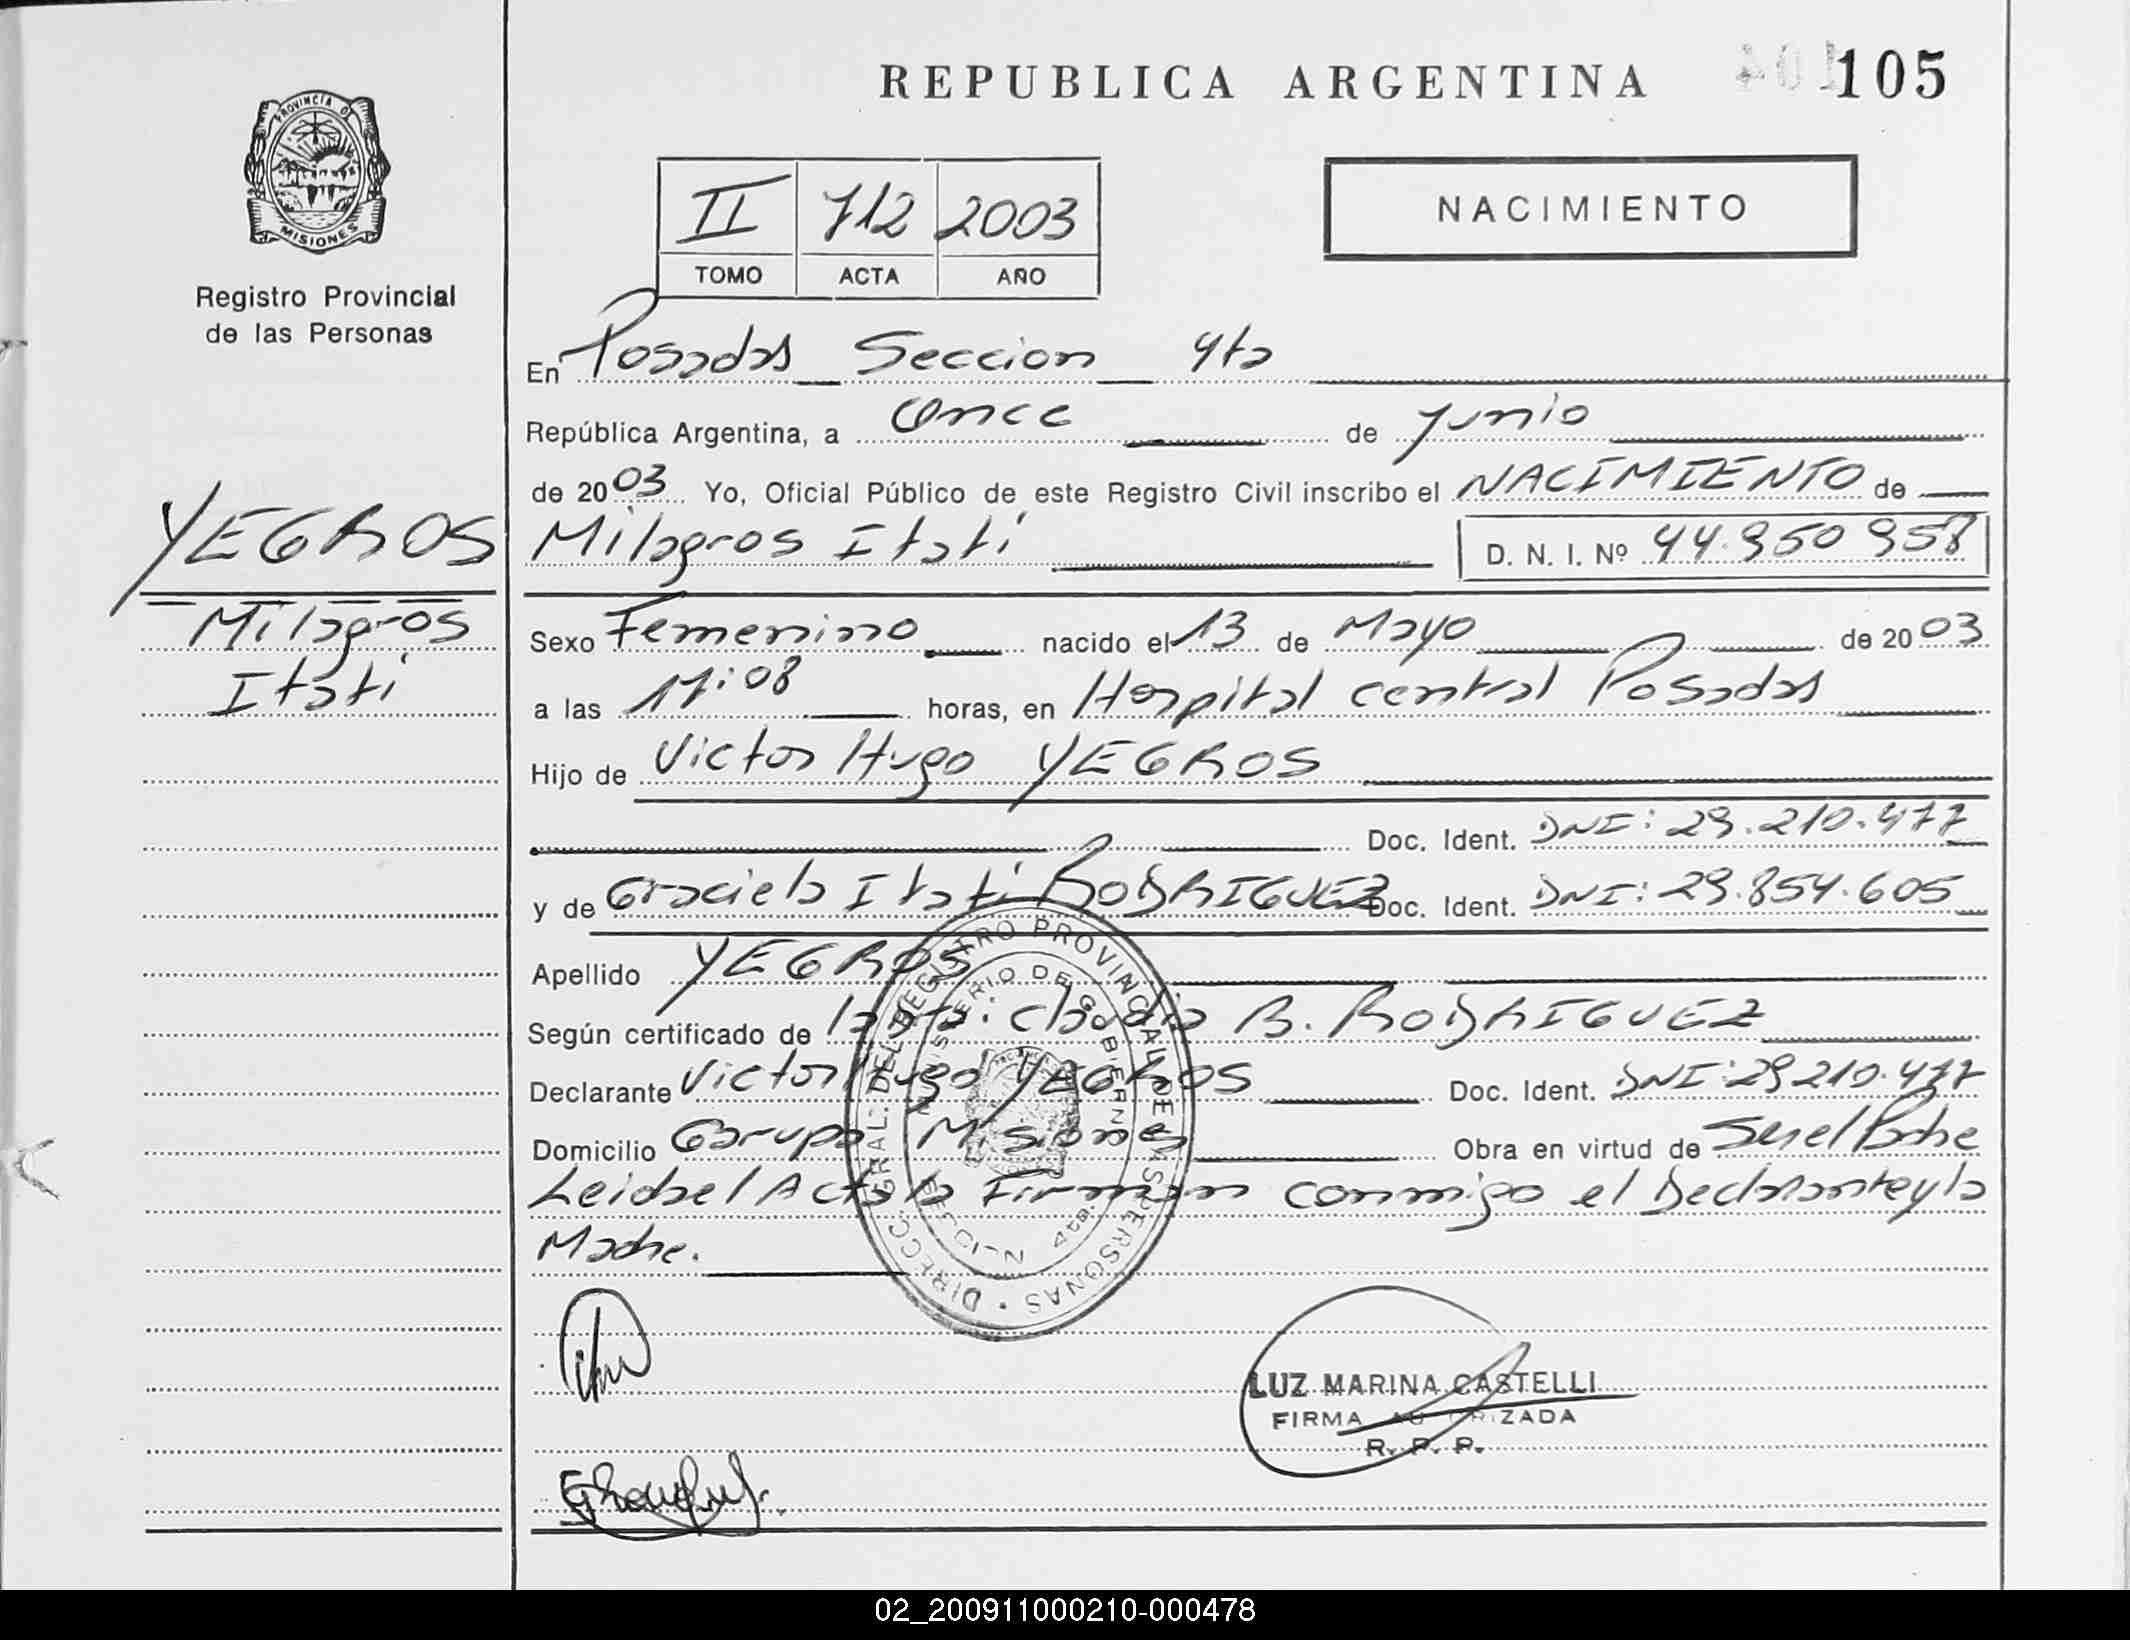 REPUBLICA ARGENTINA
105
PROVINCIA DE
MISIONES
Registro Provincial
de las Personas
II 712 2003
TOMO ACTA AÑO
NACIMIENTO
En Posadas Seccion 4ta
República Argentina, a Once de Junio
de 2003 Yo, Oficial Público de este Registro Civil inscribo el NACIMIENTO de
YEGROS
Milagros Itati D. N. I. Nº 44.950 958
Milagros
Itati
Sexo Femenino nacido el 13 de Mayo de 2003
a las 11:08 horas, en Hospital central Posadas
Hijo de Victor Hugo YEGROS
Doc. Ident. DNI: 29.210.477
y de Graciela Itati RODRIGUEZ Doc. Ident. DNI: 29.854.605
Apellido YEGROS
Según certificado de Claudia B. RODRIGUEZ
Declarante Victor Hugo YEGROS Doc. Ident. DNI: 29 210.477
Domicilio Garupa Misiones Obra en virtud de Ser el Padre
Leida el Acta la Firman conmigo el Declarante y la
Madre.
DIRECC. GRAL. DEL REGISTRO PROVINCIAL DE LAS PERSONAS
MINISTERIO DE GOBIERNO
LUZ MARINA CASTELLI
FIRMA AUTORIZADA
R. P. P.
02_200911000210-000478